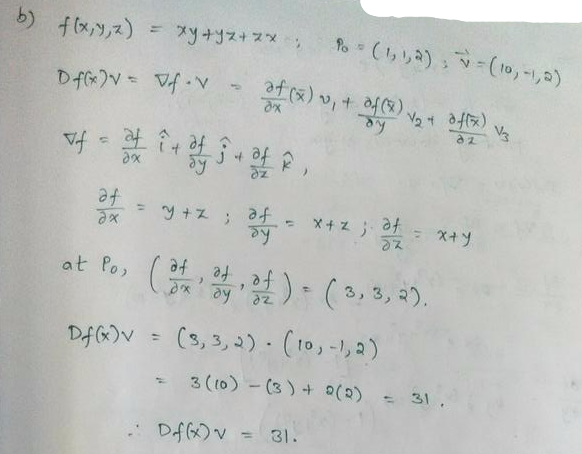 b) f(x,y,z) = xy+yz+zx ; P₀ = (1,1,2) ; v⃗ = (10,-1,2)
Df(x)v = ∇f · v = ∂f/∂x (x̄) v₁ + ∂f(x̄)/∂y v₂ + ∂f(x̄)/∂z v₃
∇f = ∂f/∂x î + ∂f/∂y ĵ + ∂f/∂z k̂ ,
∂f/∂x = y+z ; ∂f/∂y = x+z ; ∂f/∂z = x+y
at P₀, (∂f/∂x, ∂f/∂y, ∂f/∂z) = (3,3,2).
Df(x)v = (3,3,2) · (10,-1,2)
= 3(10) - (3) + 2(2) = 31.
∴ Df(x)v = 31.